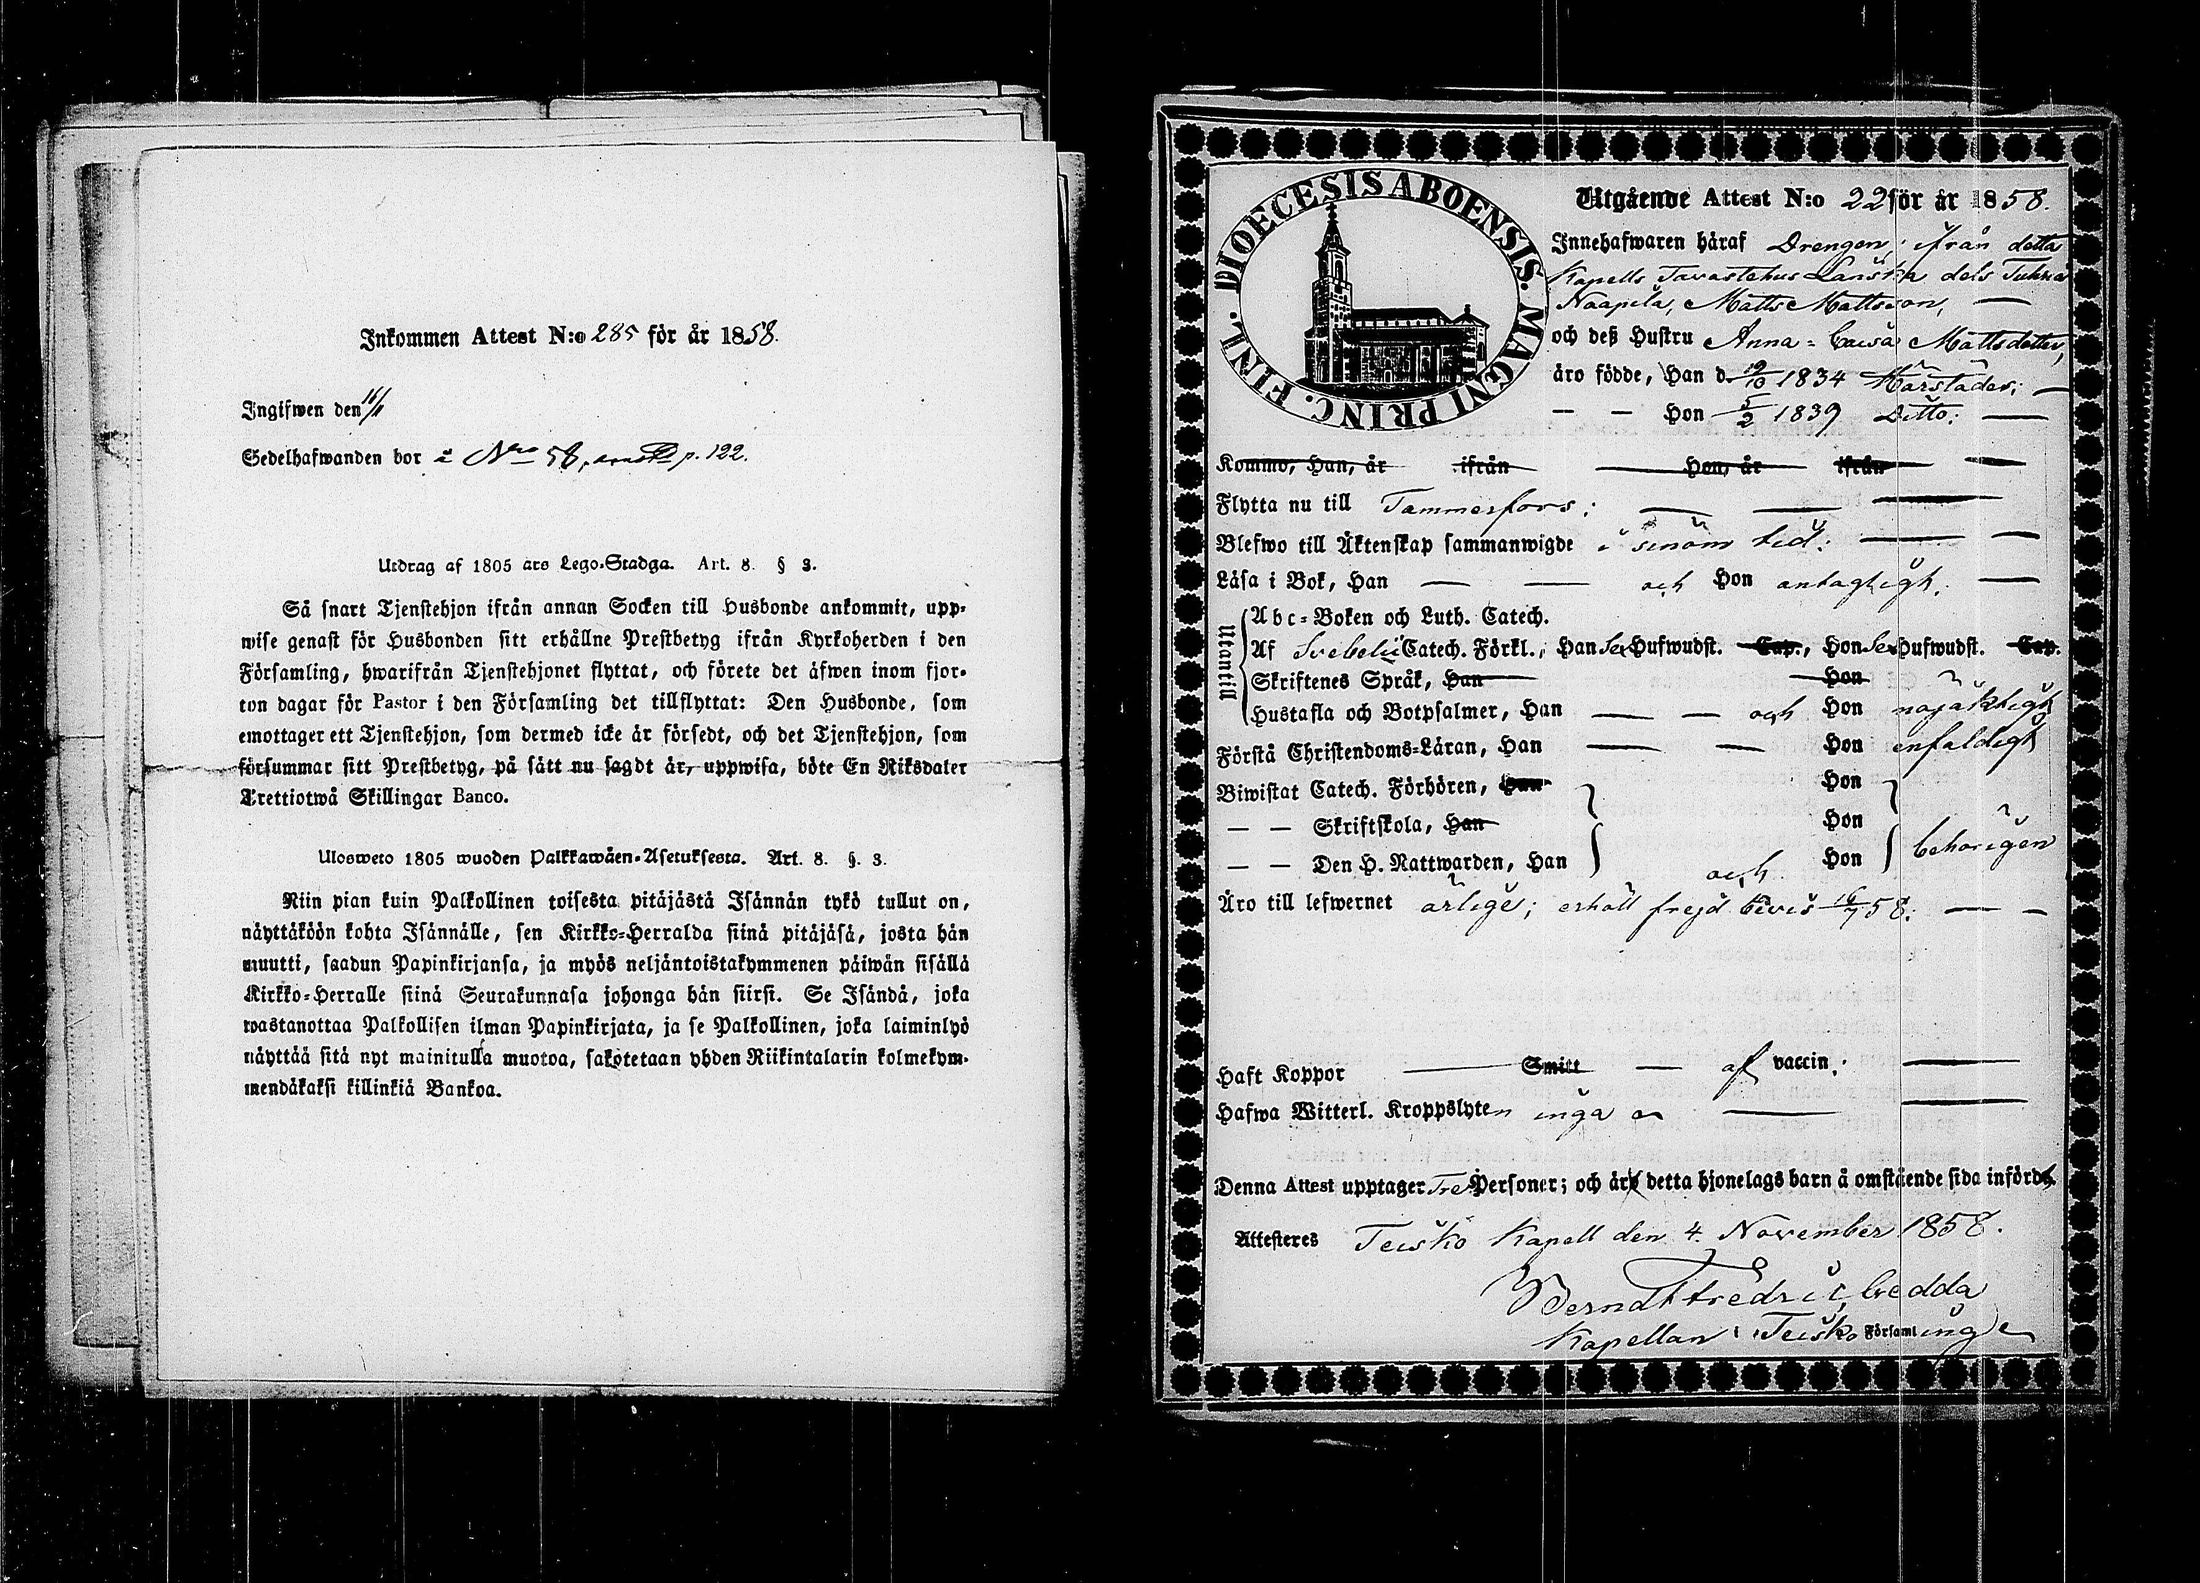 Inkommen Attest N:o 285 för år 1858.
Ingifwen den 16/11
Sedelhafwanden bor å Nro 58, p. 122.
Utdrag af 1805 års Lego-Stadga. Art. 8. § 3.
Så snart Tjenstehjon ifrån annan Socken till Husbonde ankommit, upp-
wise genast för Husbonden sitt erhållne Prestbetyg ifrån Kyrkoherden i den
Församling, hwarifrån Tjenstehjonet flyttat, och förete det äfwen inom fjor-
ton dagar för Pastor i den Församling det tillflyttat: Den Husbonde, som
emottager ett Tjenstehjon, som dermed icke är försedt, och det Tjenstehjon, som
försummar sitt Prestbetyg, på sätt nu sagdt är, uppwisa, böte En Riksdaler
Trettiotwå Skillingar Banco.
Ulosweto 1805 wuoden Palkkawäen-Asetuksesta. Art. 8. §. 3.
Niin pian kuin Palkollinen toisesta pitäjästä Isännän tykö tullut on,
näyttäköön kohta Isännälle, sen Kirkko-Herralda siinä pitäjäsä, josta hän
muutti, saadun Papinkirjansa, ja myös neljäntoistakymmenen päiwän sisällä
Kirkko-Herralle siinä Seurakunnasa johonga hän siirsi. Se Isändä, joka
wastanottaa Palkollisen ilman Papinkirjata, ja se Palkollinen, joka laiminlyö
näyttää sitä nyt mainitulla muotoa, sakotetaan yhden Riikintalarin kolmekym-
mendäkaksi killinkiä Bankoa.
DIOECESIS ABOENSIS. MAGNI PRINC. FINL.
Utgående Attest N:o 22 för år 1858.
Innehafwaren häraf Drengen ifrån detta
Kapells Tavastehus Länska dels
Naapila, Matts Mattsson,
och deß Hustru Anna-Caisa Mattsdotter,
äro födde, Han d. 19/10 1834 Härstädes;
— — Hon 5/2 1839 Ditto:
Kommo, Han, år ifrån Hon, år ifrån
Flytta nu till Tammerfors;
Blefwo till Äktenskap sammanwigde i sinom tid:
Läsa i Bok, Han — — och Hon antagligt.
Utantill
Abc-Boken och Luth. Catech.
Af Svebelii Catech. Förkl., Han Sex Hufwudst. Cap., Hon Sex Hufwudst. Cap.
Skriftenes Språk, Han Hon
Hustafla och Botpsalmer, Han — — och Hon nöjaktigt
Förstå Christendoms-Läran, Han — — Hon enfaldigt
Biwistat Catech. Förhören, Han Hon
— — Skriftskola, Han Hon
— — Den H. Nattwarden, Han och Hon behörigen
Äro till lefwernet ärlige; erhöll frejd bevis 16/7 58:
Haft Koppor — Smitt — af vaccin:
Hafwa Witterl. Kroppslyten inga
Denna Attest upptager Tre Personer; och är detta hjonelags barn å omstående sida infördt.
Attesteres Teisko Kapell den 4. November 1858.
Berndt Fredric Gedda
Kapellan i Teisko Församlinge